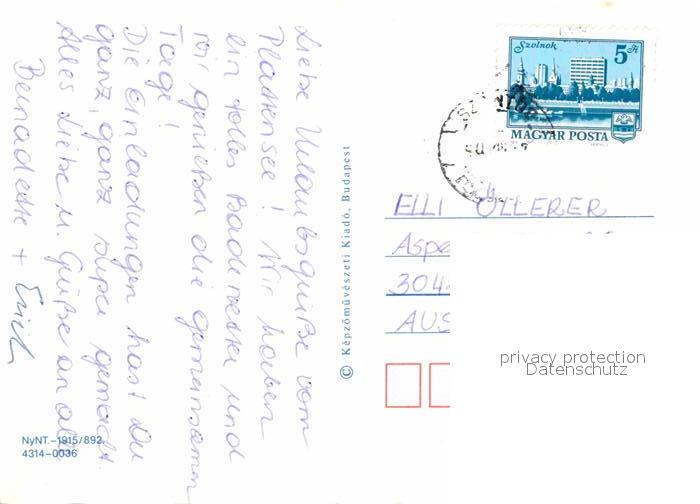 Liebe Urlaubsgrüße vom
Plattensee! Wir haben
ein tolles Badewetter und
wir genießen die gemeinsamen
Tage!
Die Einladungen hast Du
ganz, ganz super gemacht.
Alles Liebe u. Grüße an alle
Bernadette + Erich
NyNT.–1915/892.
4314–0036
© Képzőművészeti Kiadó, Budapest
Szolnok
5 Ft
MAGYAR POSTA
ELLI
Aspe
304
AUS
privacy protection
Datenschutz